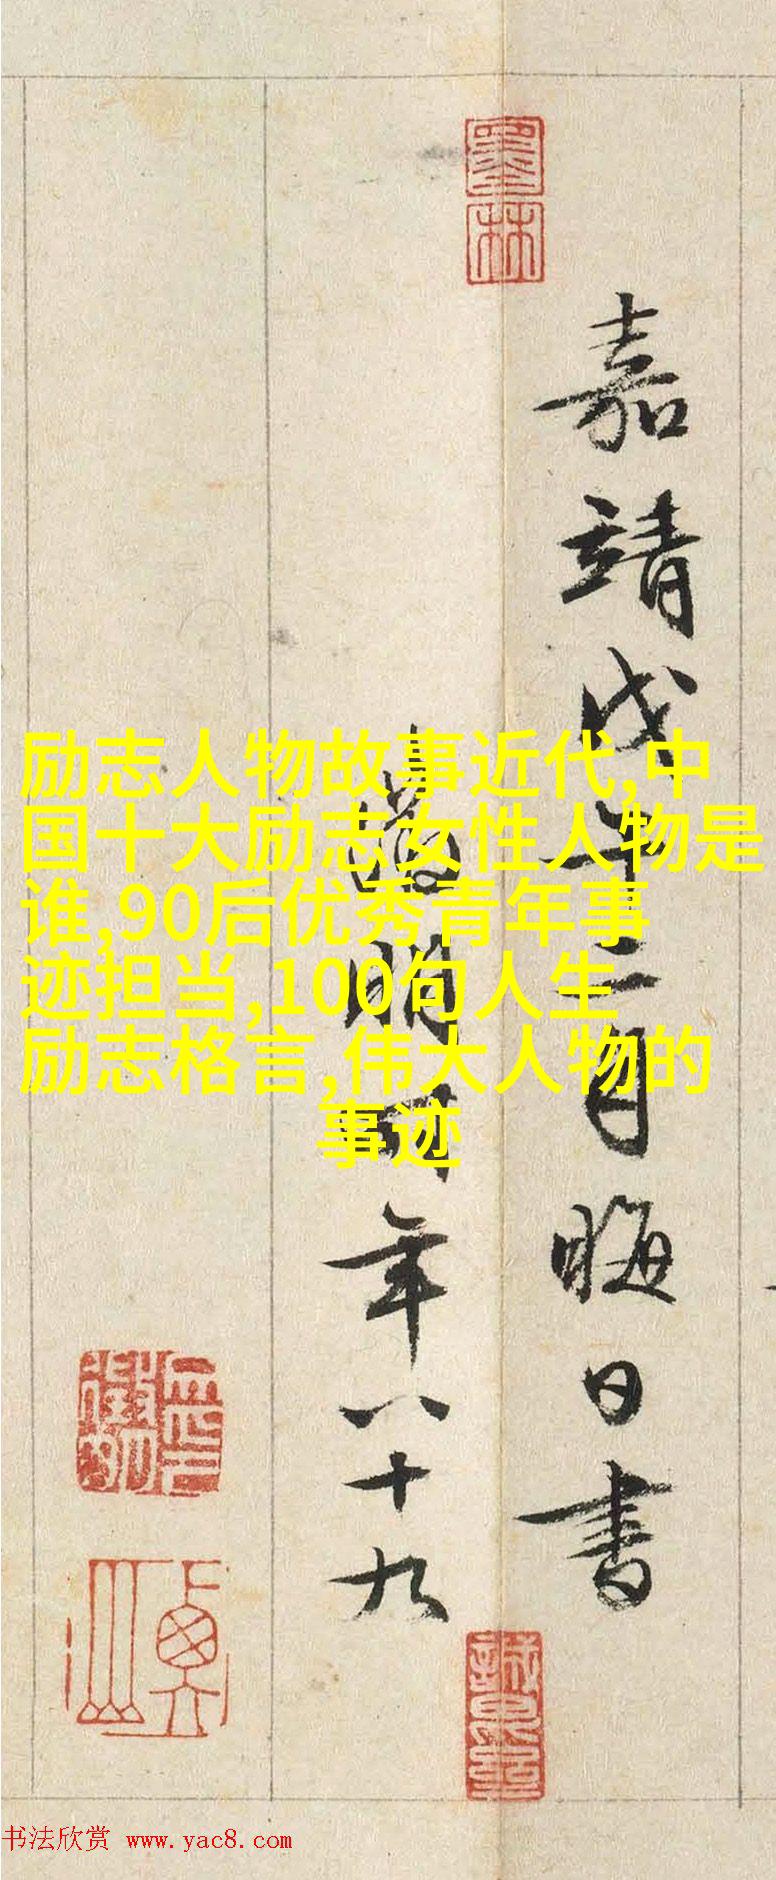 墨林
嘉靖戊午二月晦日書
徵明時年八十九
衡山
励志人物故事近代,中
国十大励志女性人物是
谁,90后优秀青年事
迹担当,100句人生
励志格言,伟大人物的
事迹
书法欣赏 www.yac8.com